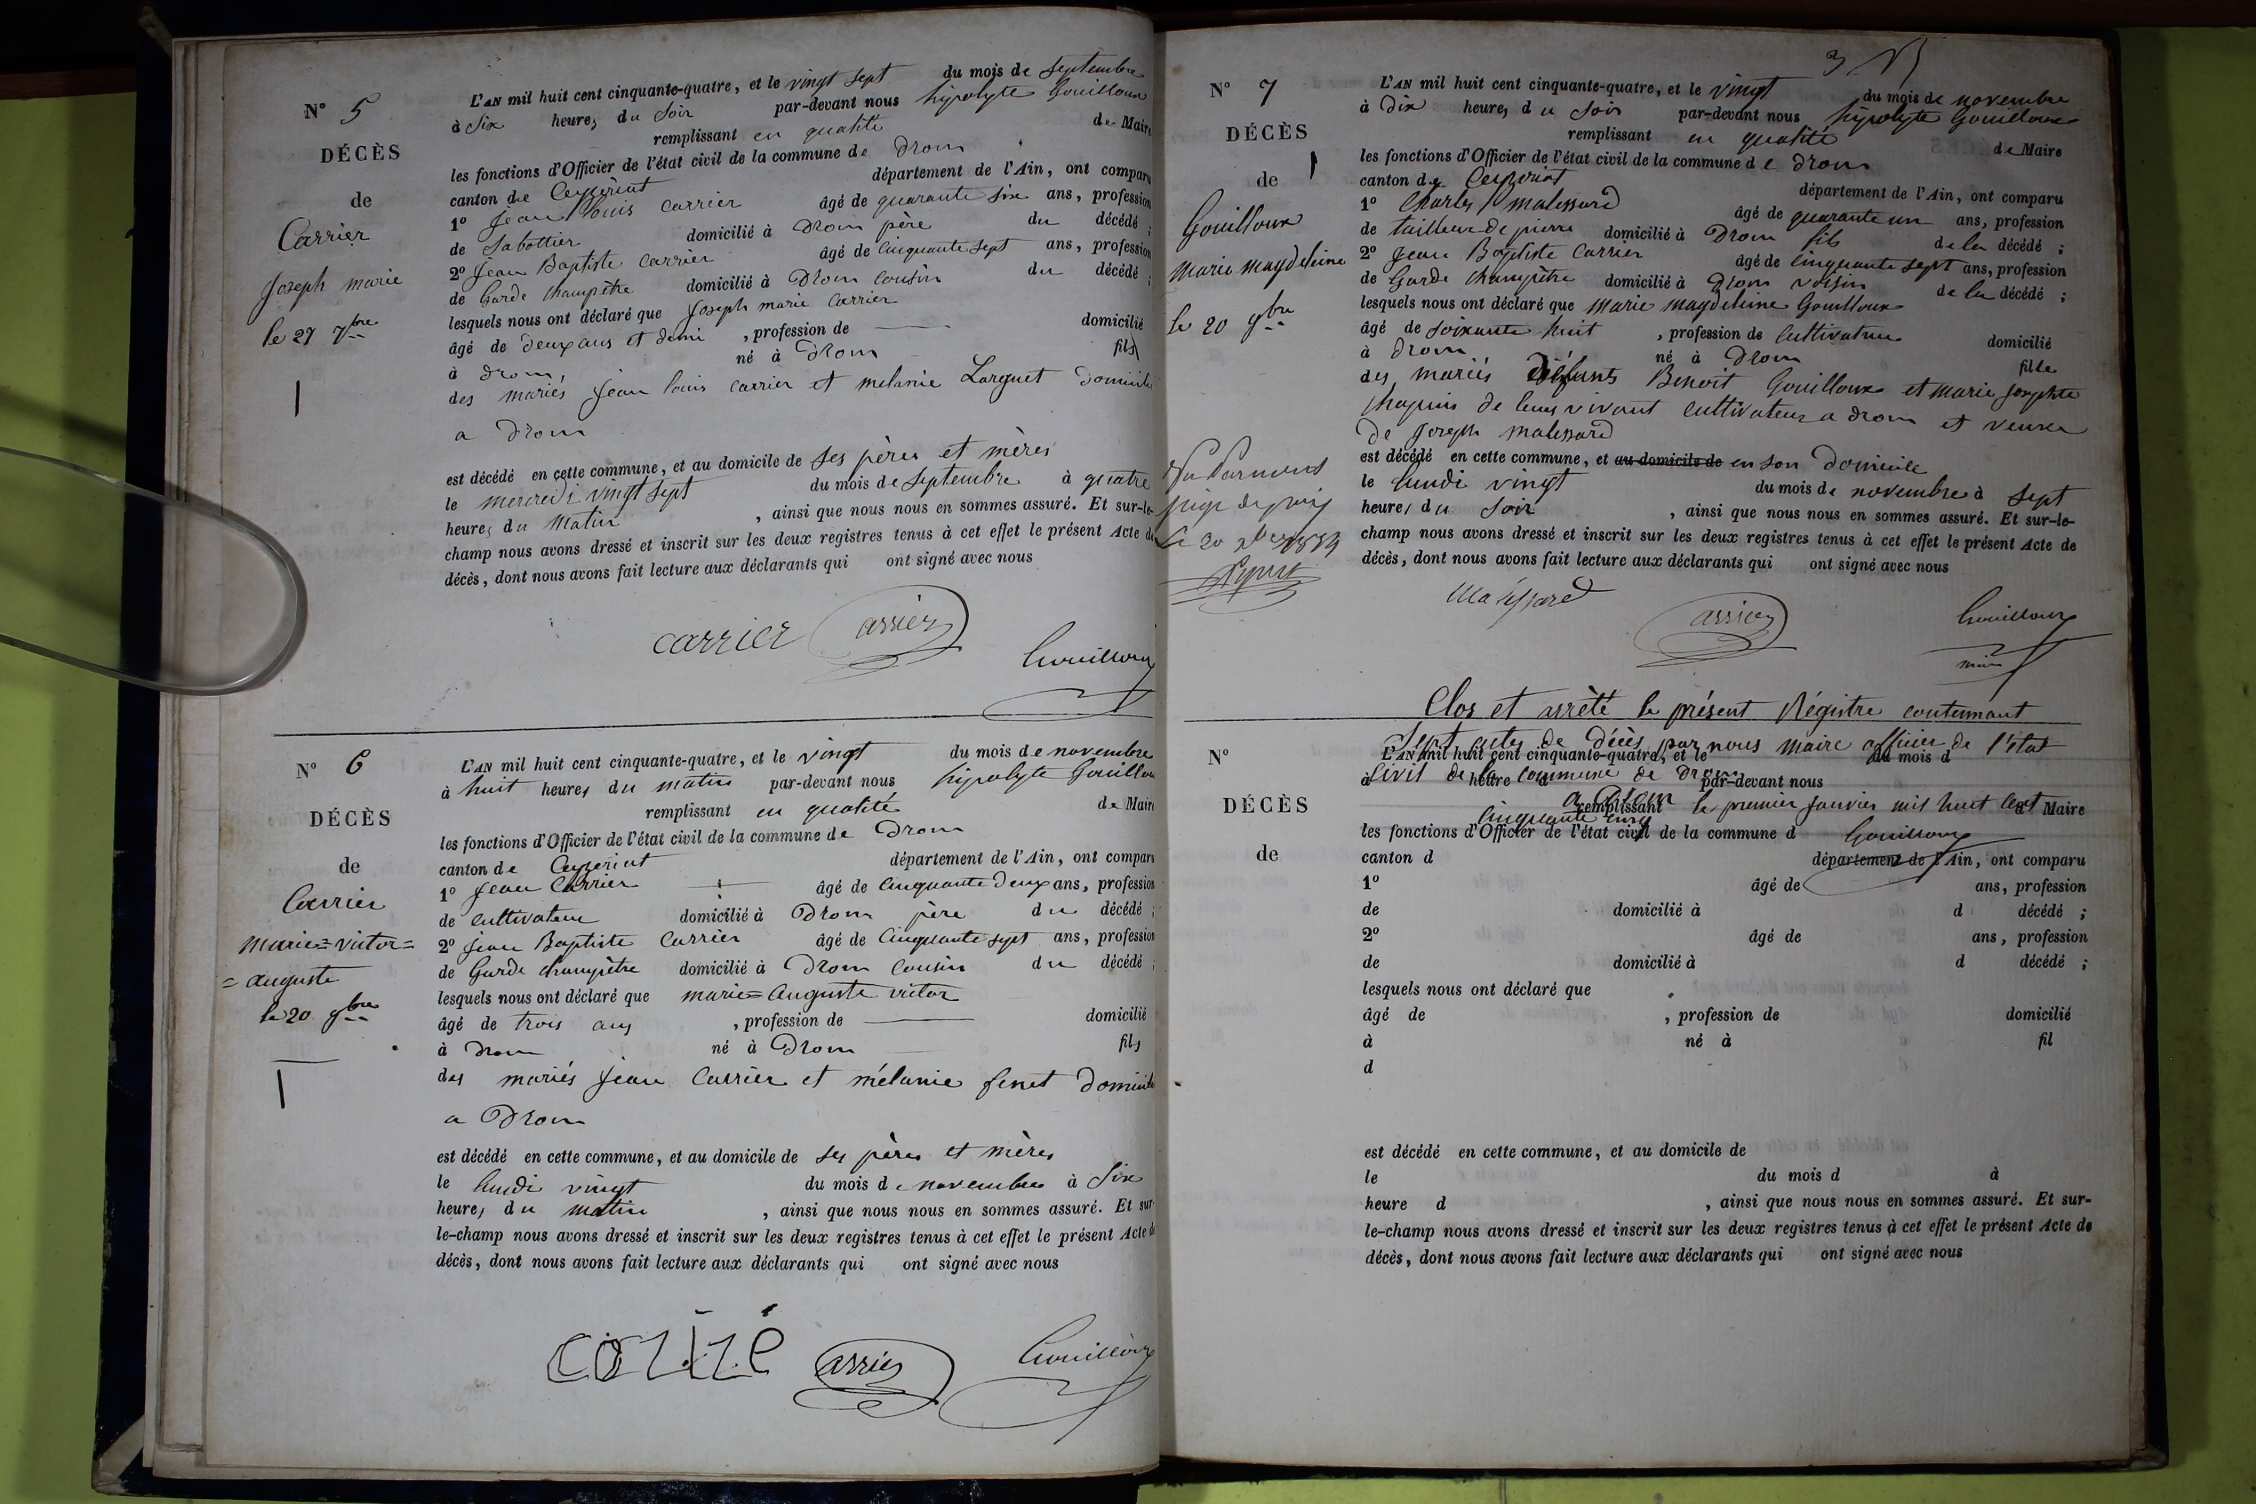 N° 5
DÉCÈS
de
Carrier
Joseph marie
le 27 7bre
L'AN mil huit cent cinquante-quatre, et le vingt sept du mois de septembre
à six heures du soir par-devant nous hipolyte Gouilloux
remplissant en qualité de Maire
les fonctions d'Officier de l'état civil de la commune de Drom
canton de Ceyzériat département de l'Ain, ont comparu
1° Jean Louis Carrier âgé de quarante six ans, profession
de Sabottier domicilié à Drom père du décédé ;
2° Jean Baptiste Carrier âgé de cinquante sept ans, profession
de Garde champêtre domicilié à Drom cousin du décédé ;
lesquels nous ont déclaré que Joseph marie Carrier
âgé de deux ans et demi , profession de domicilié
à Drom, né à Drom fils
des mariés Jean Louis Carrier et melanie Larguet domiciliés
a Drom
est décédé en cette commune, et au domicile de ses pères et mères
le mercredi vingt sept du mois de septembre à quatre
heures du matin , ainsi que nous nous en sommes assuré. Et sur-le-
champ nous avons dressé et inscrit sur les deux registres tenus à cet effet le présent Acte de
décès, dont nous avons fait lecture aux déclarants qui ont signé avec nous
carrier Carrier Gouilloux
N° 6
DÉCÈS
de
Carrier
marie=victor=
=auguste
le 20 9bre
L'AN mil huit cent cinquante-quatre, et le vingt du mois de novembre
à huit heures du matin par-devant nous hipolyte Gouilloux
remplissant en qualité de Maire
les fonctions d'Officier de l'état civil de la commune de Drom
canton de Ceyzériat département de l'Ain, ont comparu
1° Jean Carrier âgé de cinquante deux ans, profession
de cultivateur domicilié à Drom père du décédé ;
2° Jean Baptiste Carrier âgé de cinquante sept ans, profession
de Garde champêtre domicilié à Drom cousin du décédé ;
lesquels nous ont déclaré que marie=auguste victor
âgé de trois ans , profession de domicilié
à Drom né à Drom fils
des mariés Jean Carrier et mélanie fenet domiciliés
a Drom
est décédé en cette commune, et au domicile de ses pères et mères
le lundi vingt du mois de novembre à six
heures du matin , ainsi que nous nous en sommes assuré. Et sur-
le-champ nous avons dressé et inscrit sur les deux registres tenus à cet effet le présent Acte de
décès, dont nous avons fait lecture aux déclarants qui ont signé avec nous
Carrier Gouilloux
N° 7
DÉCÈS
de
Gouilloux
marie magdeleine
le 20 9bre
L'AN mil huit cent cinquante-quatre, et le vingt du mois de novembre
à dix heures du soir par-devant nous hipolyte Gouilloux
remplissant en qualité de Maire
les fonctions d'Officier de l'état civil de la commune de Drom
canton de Ceyzériat département de l'Ain, ont comparu
1° Charles malessard âgé de quarante un ans, profession
de tailleur de pierre domicilié à Drom fils de la décédé ;
2° Jean Baptiste Carrier âgé de cinquante sept ans, profession
de Garde champêtre domicilié à Drom voisin de la décédé ;
lesquels nous ont déclaré que marie magdeleine Gouilloux
âgé de soixante huit , profession de cultivatrice domicilié
à Drom né à Drom fille
des mariés défunts Benoit Gouilloux et marie Josephte
Chapuis de leurs vivant cultivateurs a Drom et veuve
de Joseph malessard
est décédé en cette commune, et au domicile de en son domicile
le lundi vingt du mois de novembre à sept
heures du soir , ainsi que nous nous en sommes assuré. Et sur-le-
champ nous avons dressé et inscrit sur les deux registres tenus à cet effet le présent Acte de
décès, dont nous avons fait lecture aux déclarants qui ont signé avec nous
Malessard Carrier Gouilloux
maire
Vu Par nous
juge de paix
Clos et arrêté le présent Régistre contennant
sept actes de Décès par nous maire officier de l'état
civil de la commune de Drom
a Drom le premier Janvier mil huit cent
cinquante cinq
Gouilloux
N°
DÉCÈS
de
L'AN mil huit cent cinquante-quatre, et le du mois d
à heure d par-devant nous
remplissant d Maire
les fonctions d'Officier de l'état civil de la commune d
canton d département de l'Ain, ont comparu
1° âgé de ans, profession
de domicilié à d décédé ;
2° âgé de ans, profession
de domicilié à d décédé ;
lesquels nous ont déclaré que
âgé de , profession de domicilié
à né à fil
d
est décédé en cette commune, et au domicile de
le du mois d à
heure d , ainsi que nous nous en sommes assuré. Et sur-
le-champ nous avons dressé et inscrit sur les deux registres tenus à cet effet le présent Acte de
décès, dont nous avons fait lecture aux déclarants qui ont signé avec nous